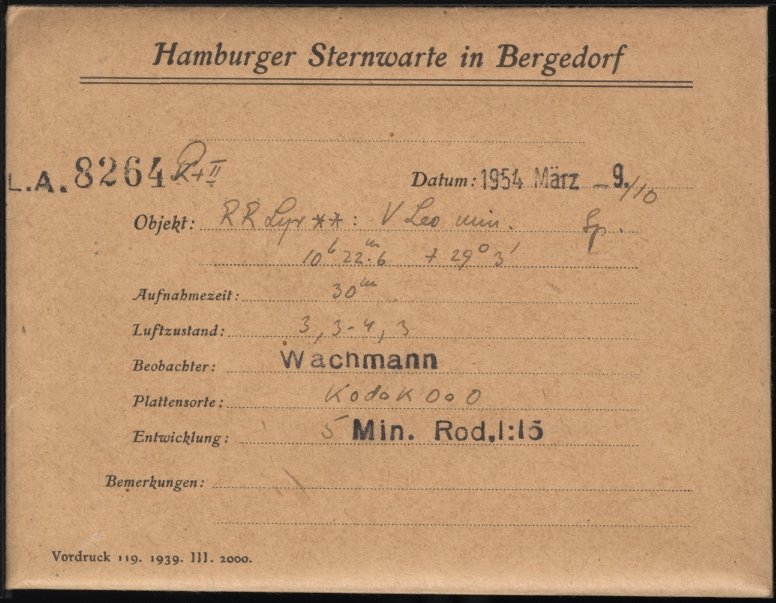 Hamburger Sternwarte in Bergedorf
L.A. 8264 R+II Datum: 1954 März 9./10
Objekt: RR Lyr **: V Leo min. Sp.
10h 22m.6 + 29° 3'
Aufnahmezeit: 30m
Luftzustand: 3, 3-4, 3
Beobachter: Wachmann
Plattensorte: Kodak OaO
Entwicklung: 5 Min. Rod.1:15
Bemerkungen:
Vordruck 119. 1939. III. 2000.